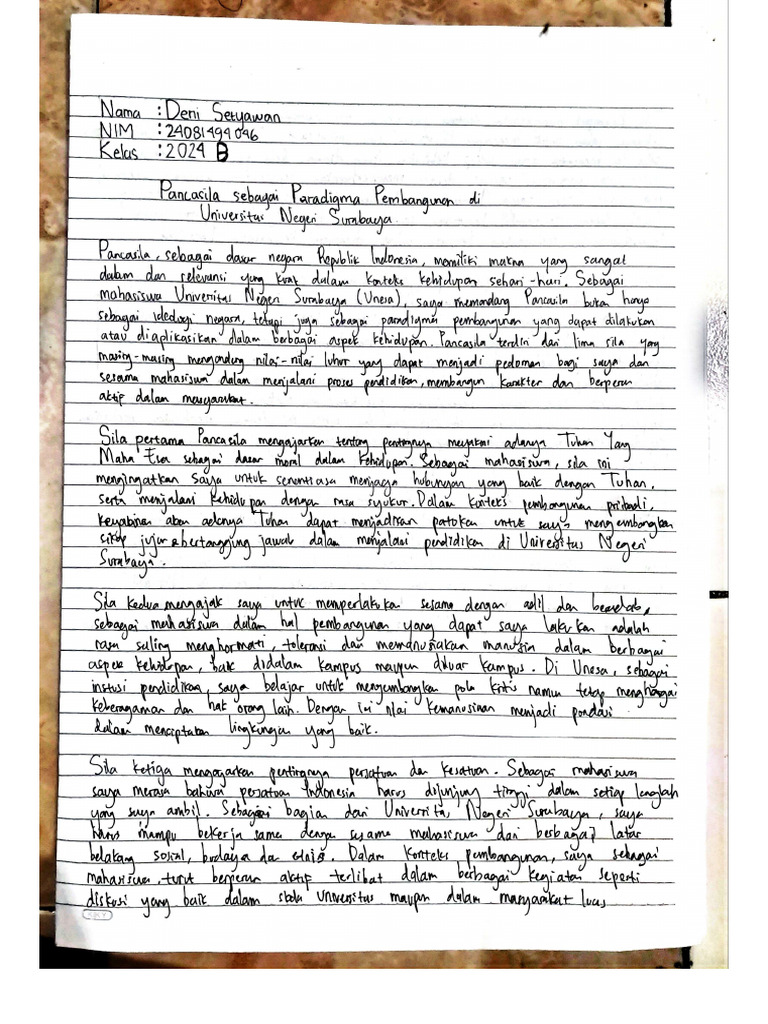 Nama : Deni Setyawan
NIM : 24081494046
Kelas : 2024 B
Pancasila sebagai Paradigma Pembangunan di
Universitas Negeri Surabaya
Pancasila, sebagai dasar negara Republik Indonesia, memiliki makna yang sangat
dalam dan relevansi yang kuat dalam konteks kehidupan sehari-hari. Sebagai
mahasiswa Universitas Negeri Surabaya (Unesa), saya memandang Pancasila bukan hanya
sebagai ideologi negara, tetapi juga sebagai paradigma pembangunan yang dapat dilakukan
atau diaplikasikan dalam berbagai aspek kehidupan. Pancasila terdiri dari lima sila yang
masing-masing mengandung nilai-nilai luhur yang dapat menjadi pedoman bagi saya dan
sesama mahasiswa dalam menjalani proses pendidikan, membangun karakter dan berperan
aktif dalam masyarakat.
Sila pertama Pancasila mengajarkan tentang pentingnya meyakini adanya Tuhan Yang
Maha Esa sebagai dasar moral dalam kehidupan. Sebagai mahasiswa, sila ini
mengingatkan saya untuk senantiasa menjaga hubungan yang baik dengan Tuhan,
serta menjalani kehidupan dengan rasa syukur. Dalam konteks pembangunan pribadi,
keyakinan akan adanya Tuhan dapat menjadikan patokan untuk saya mengembangkan
sikap jujur & bertanggung jawab dalam menjalani pendidikan di Universitas Negeri
Surabaya.
Sila kedua mengajak saya untuk memperlakukan sesama dengan adil dan beradab,
sebagai mahasiswa dalam hal pembangunan yang dapat saya lakukan adalah
rasa saling menghormati, toleransi dan memanusiakan manusia dalam berbagai
aspek kehidupan, baik didalam kampus maupun diluar kampus. Di Unesa, sebagai
instusi pendidikan, saya belajar untuk mengembangkan pola kritis namun tetap menghargai
keberagaman dan hak orang lain. Dengan ini nilai kemanusiaan menjadi pondasi
dalam menciptakan lingkungan yang baik.
Sila ketiga mengajarkan pentingnya persatuan dan kesatuan. Sebagai mahasiswa
saya merasa bahwa persatuan Indonesia harus dijunjung tinggi dalam setiap langkah
yang saya ambil. Sebagai bagian dari Universitas Negeri Surabaya, saya
harus mampu bekerja sama dengan sesama mahasiswa dari berbagai latar
belakang sosial, budaya dan etnis. Dalam konteks pembangunan, saya sebagai
mahasiswa, turut berperan aktif terlibat dalam berbagai kegiatan seperti
diskusi yang baik dalam universitas maupun dalam masyarakat luas